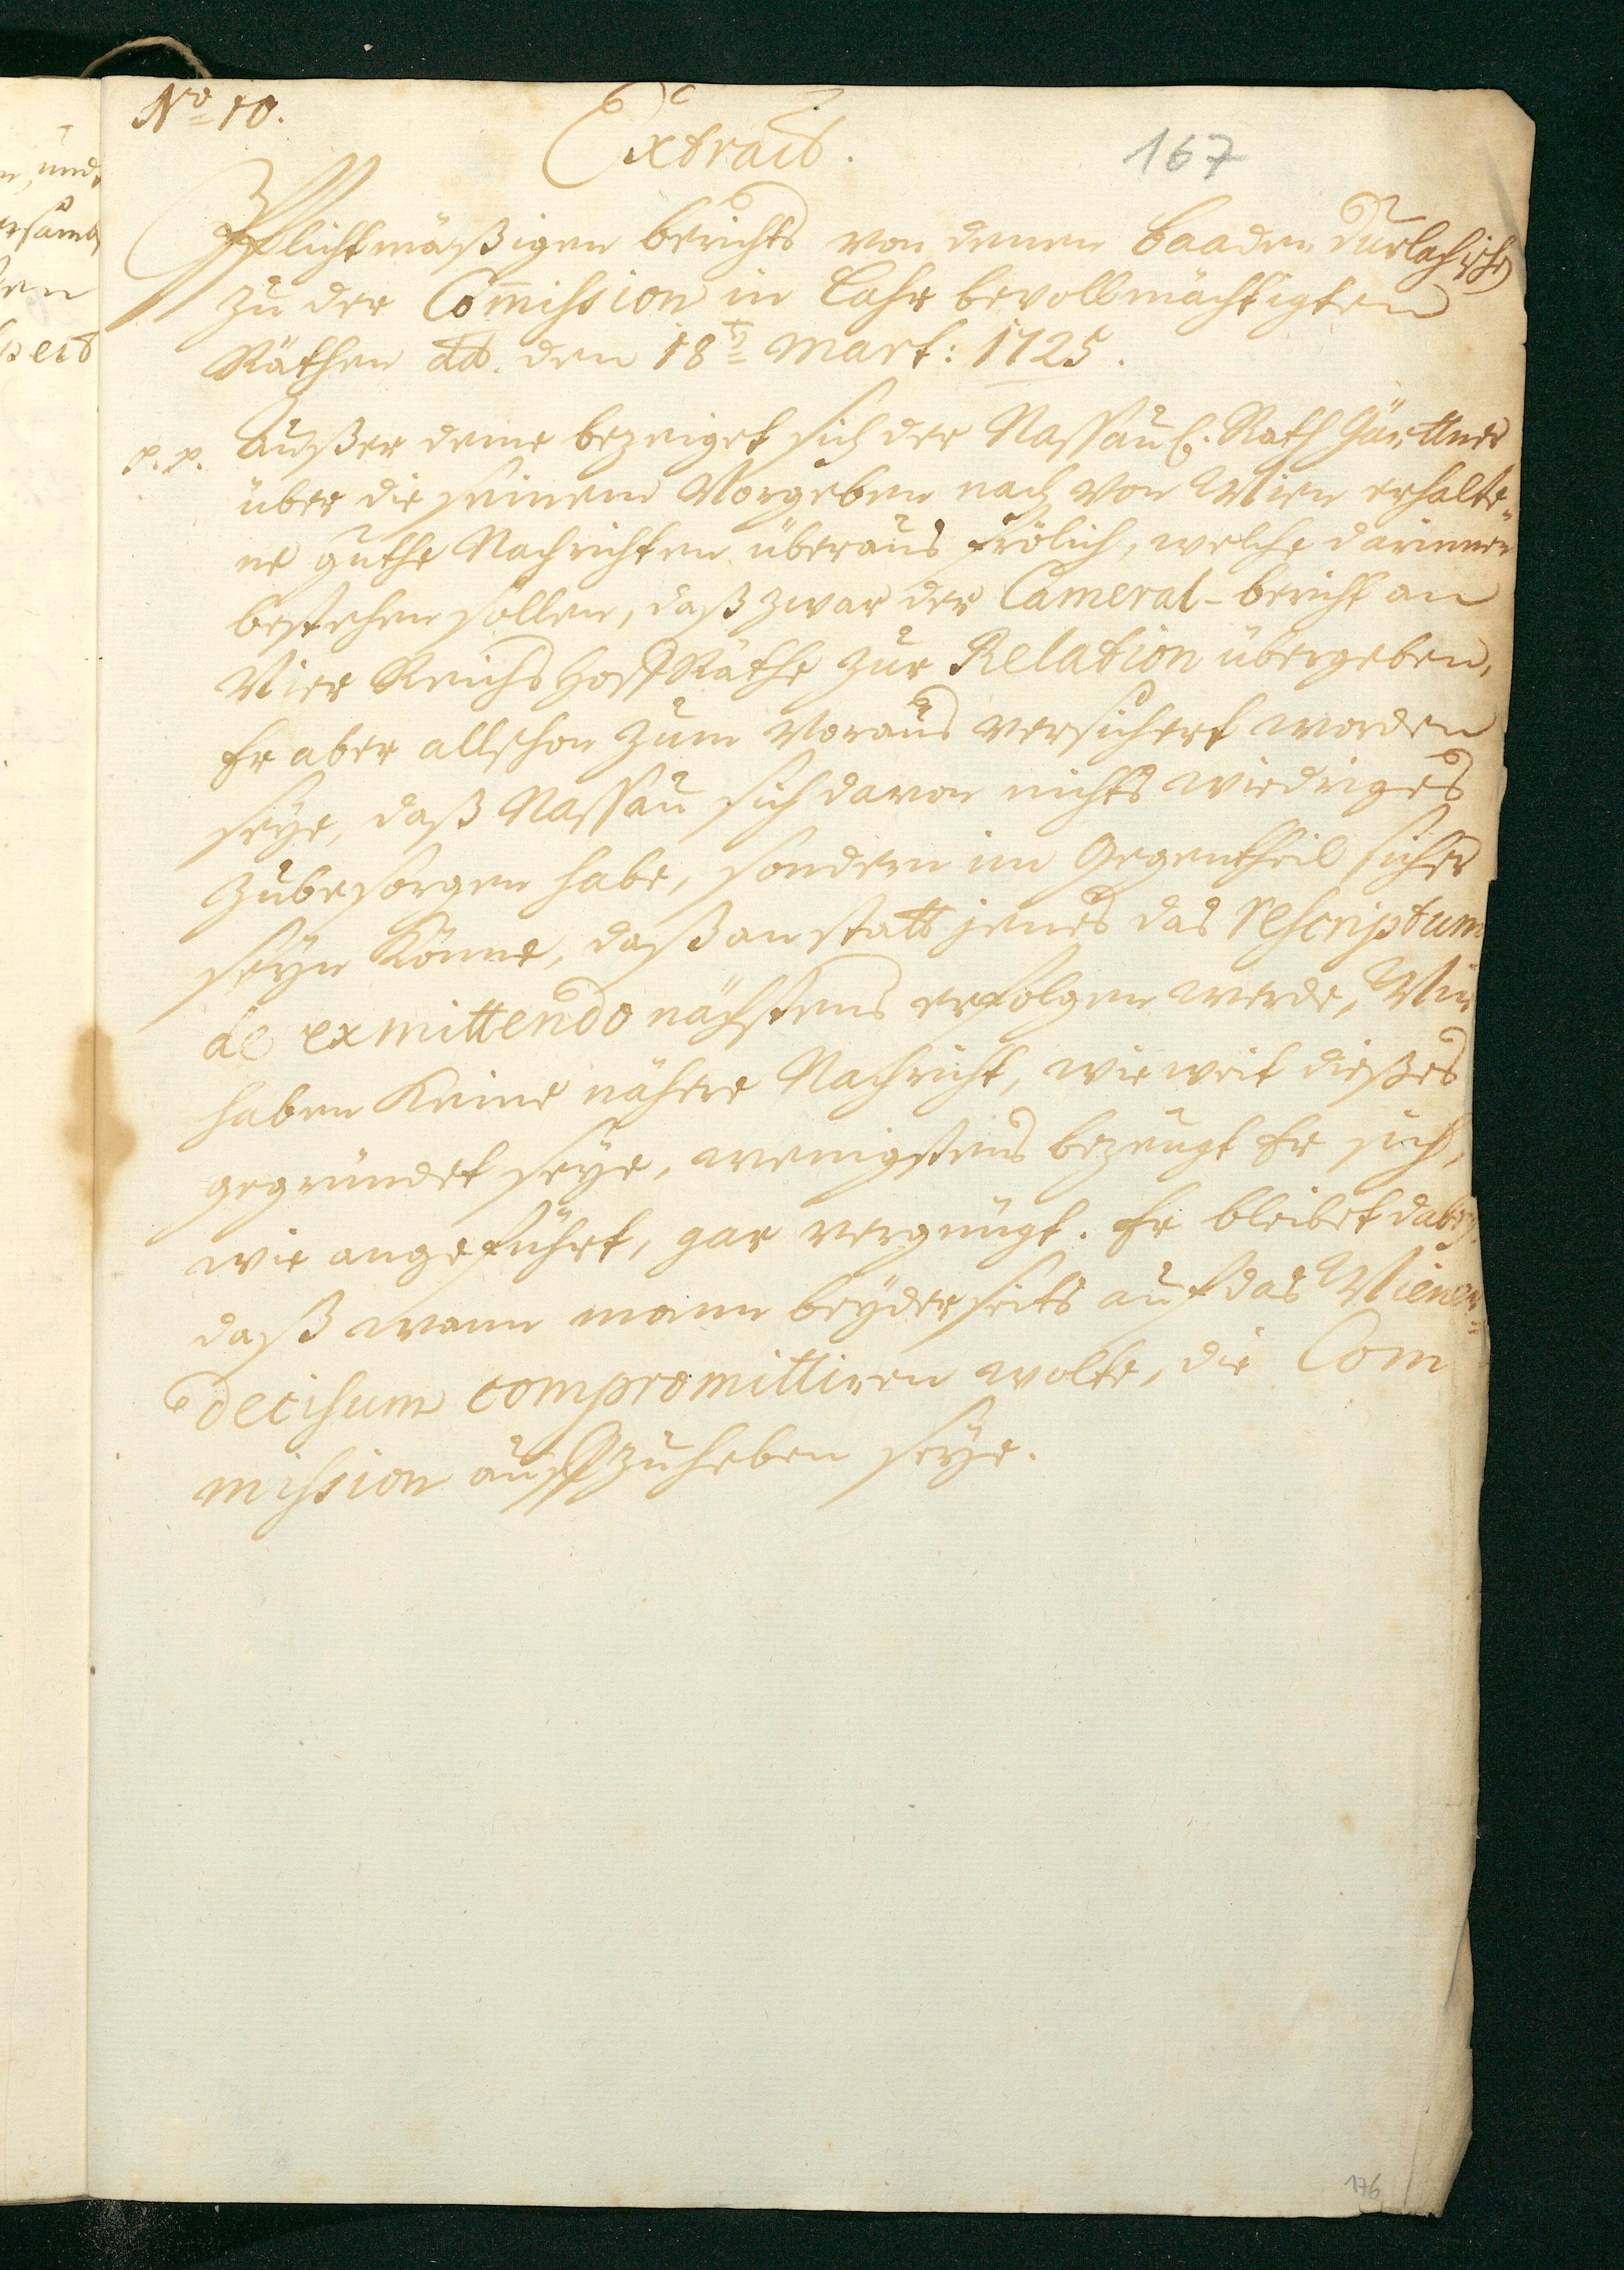 No 10.
Extract.
167
Pflichtmäßigen berichts von denen Baaden Durlachische
zu der Com̅ission in Lahr bevollmächtigten
Räthen dd. den 18ten Mart: 1725.
p. p. Außer deme bezeiget sich der Nassau. Rath Gärttner
über die seinem Vorgeben nach von Wien erhalte„
ne guthe Nachrichten überaus frölich, welche darinnen
bestehen sollen, daß zwar der Cameral-bericht an
Vier ReichsHoffRäthe zur Relation übergeben,
Er aber allschon zum Voraus versichert worden
seye, daß Nassau sich davon nichts wiedriges
zubesorgen habe, sondern im Gegentheil sicher
seyn könne, daß anstatt jenes das rescriptum
de exmittendo nächstens erfolgen werde, Wir
haben keine nähere Nachricht, wie weit dießes
gegründet seye, wenigstens bezeugt Er sich,
wie angeführt, gar vergnügt. Er bleibet dabey,
daß wann mann beyderseits auf das Wiener=
decisum compromittiren wolte, die Com
mission auffzuheben seye.
176